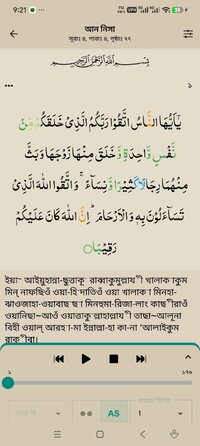 9:21
আন নিসা
সূরাঃ ৪, পারাঃ ৪, পৃষ্ঠাঃ ৭৭
بِسْمِ اللّٰهِ الرَّحْمٰنِ الرَّحِيْمِ
১
يٰٓاَيُّهَا النَّاسُ اتَّقُوْا رَبَّكُمُ الَّذِيْ خَلَقَكُمْ مِّنْ
نَّفْسٍ وَّاحِدَةٍ وَّخَلَقَ مِنْهَا زَوْجَهَا وَبَثَّ
مِنْهُمَا رِجَالًا كَثِيْرًا وَّنِسَآءً ۚ وَاتَّقُوا اللّٰهَ الَّذِيْ
تَسَآءَلُوْنَ بِهٖ وَالْاَرْحَامَ ؕ اِنَّ اللّٰهَ كَانَ عَلَيْكُمْ
رَقِيْبًا
ইয়া~ আইয়ুহান্না-ছুত্তাকূ রাব্বাকুমুল্লাযী খালাকাকুম
মিন্ নাফছিওঁ ওয়া-হিদাতিওঁ ওয়া খালাকা মিনহা-
ঝাওজাহা-ওয়াবাছছা মিনহুমা-রিজা-লাং কাছীরাওঁ
ওয়ানিছা~আওঁ ওয়াত্তাকুল্লাহাল্লাযী তাছা~আলূনা
বিহী ওয়াল্ আরহা-মা ইন্নাল্লা-হা কা-না 'আলাইকুম
রাকীবা।
১
১৭৬
AS
1